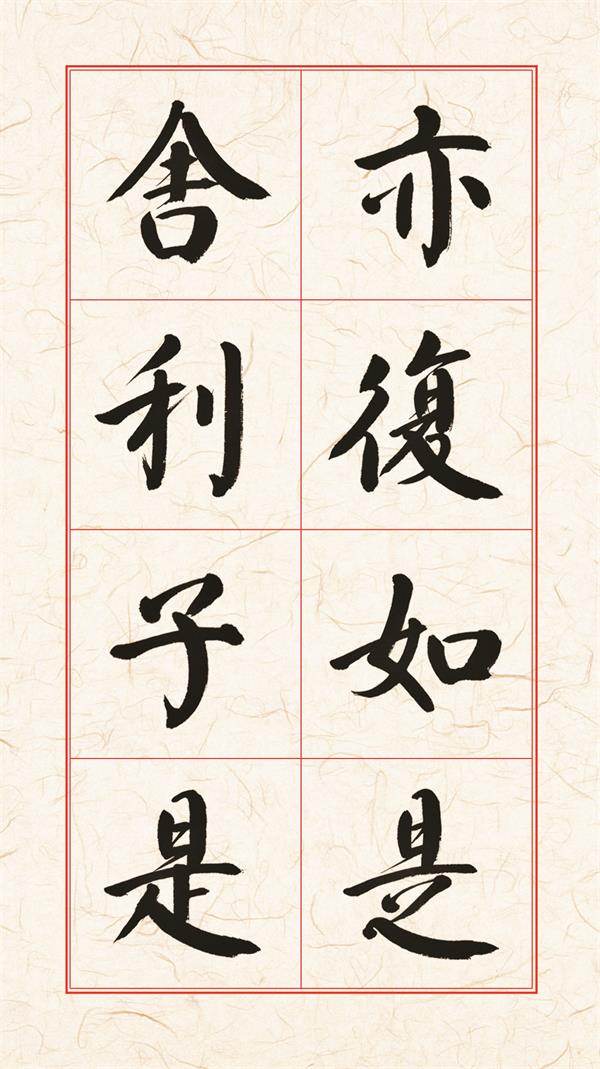 亦復如是
舍利子是